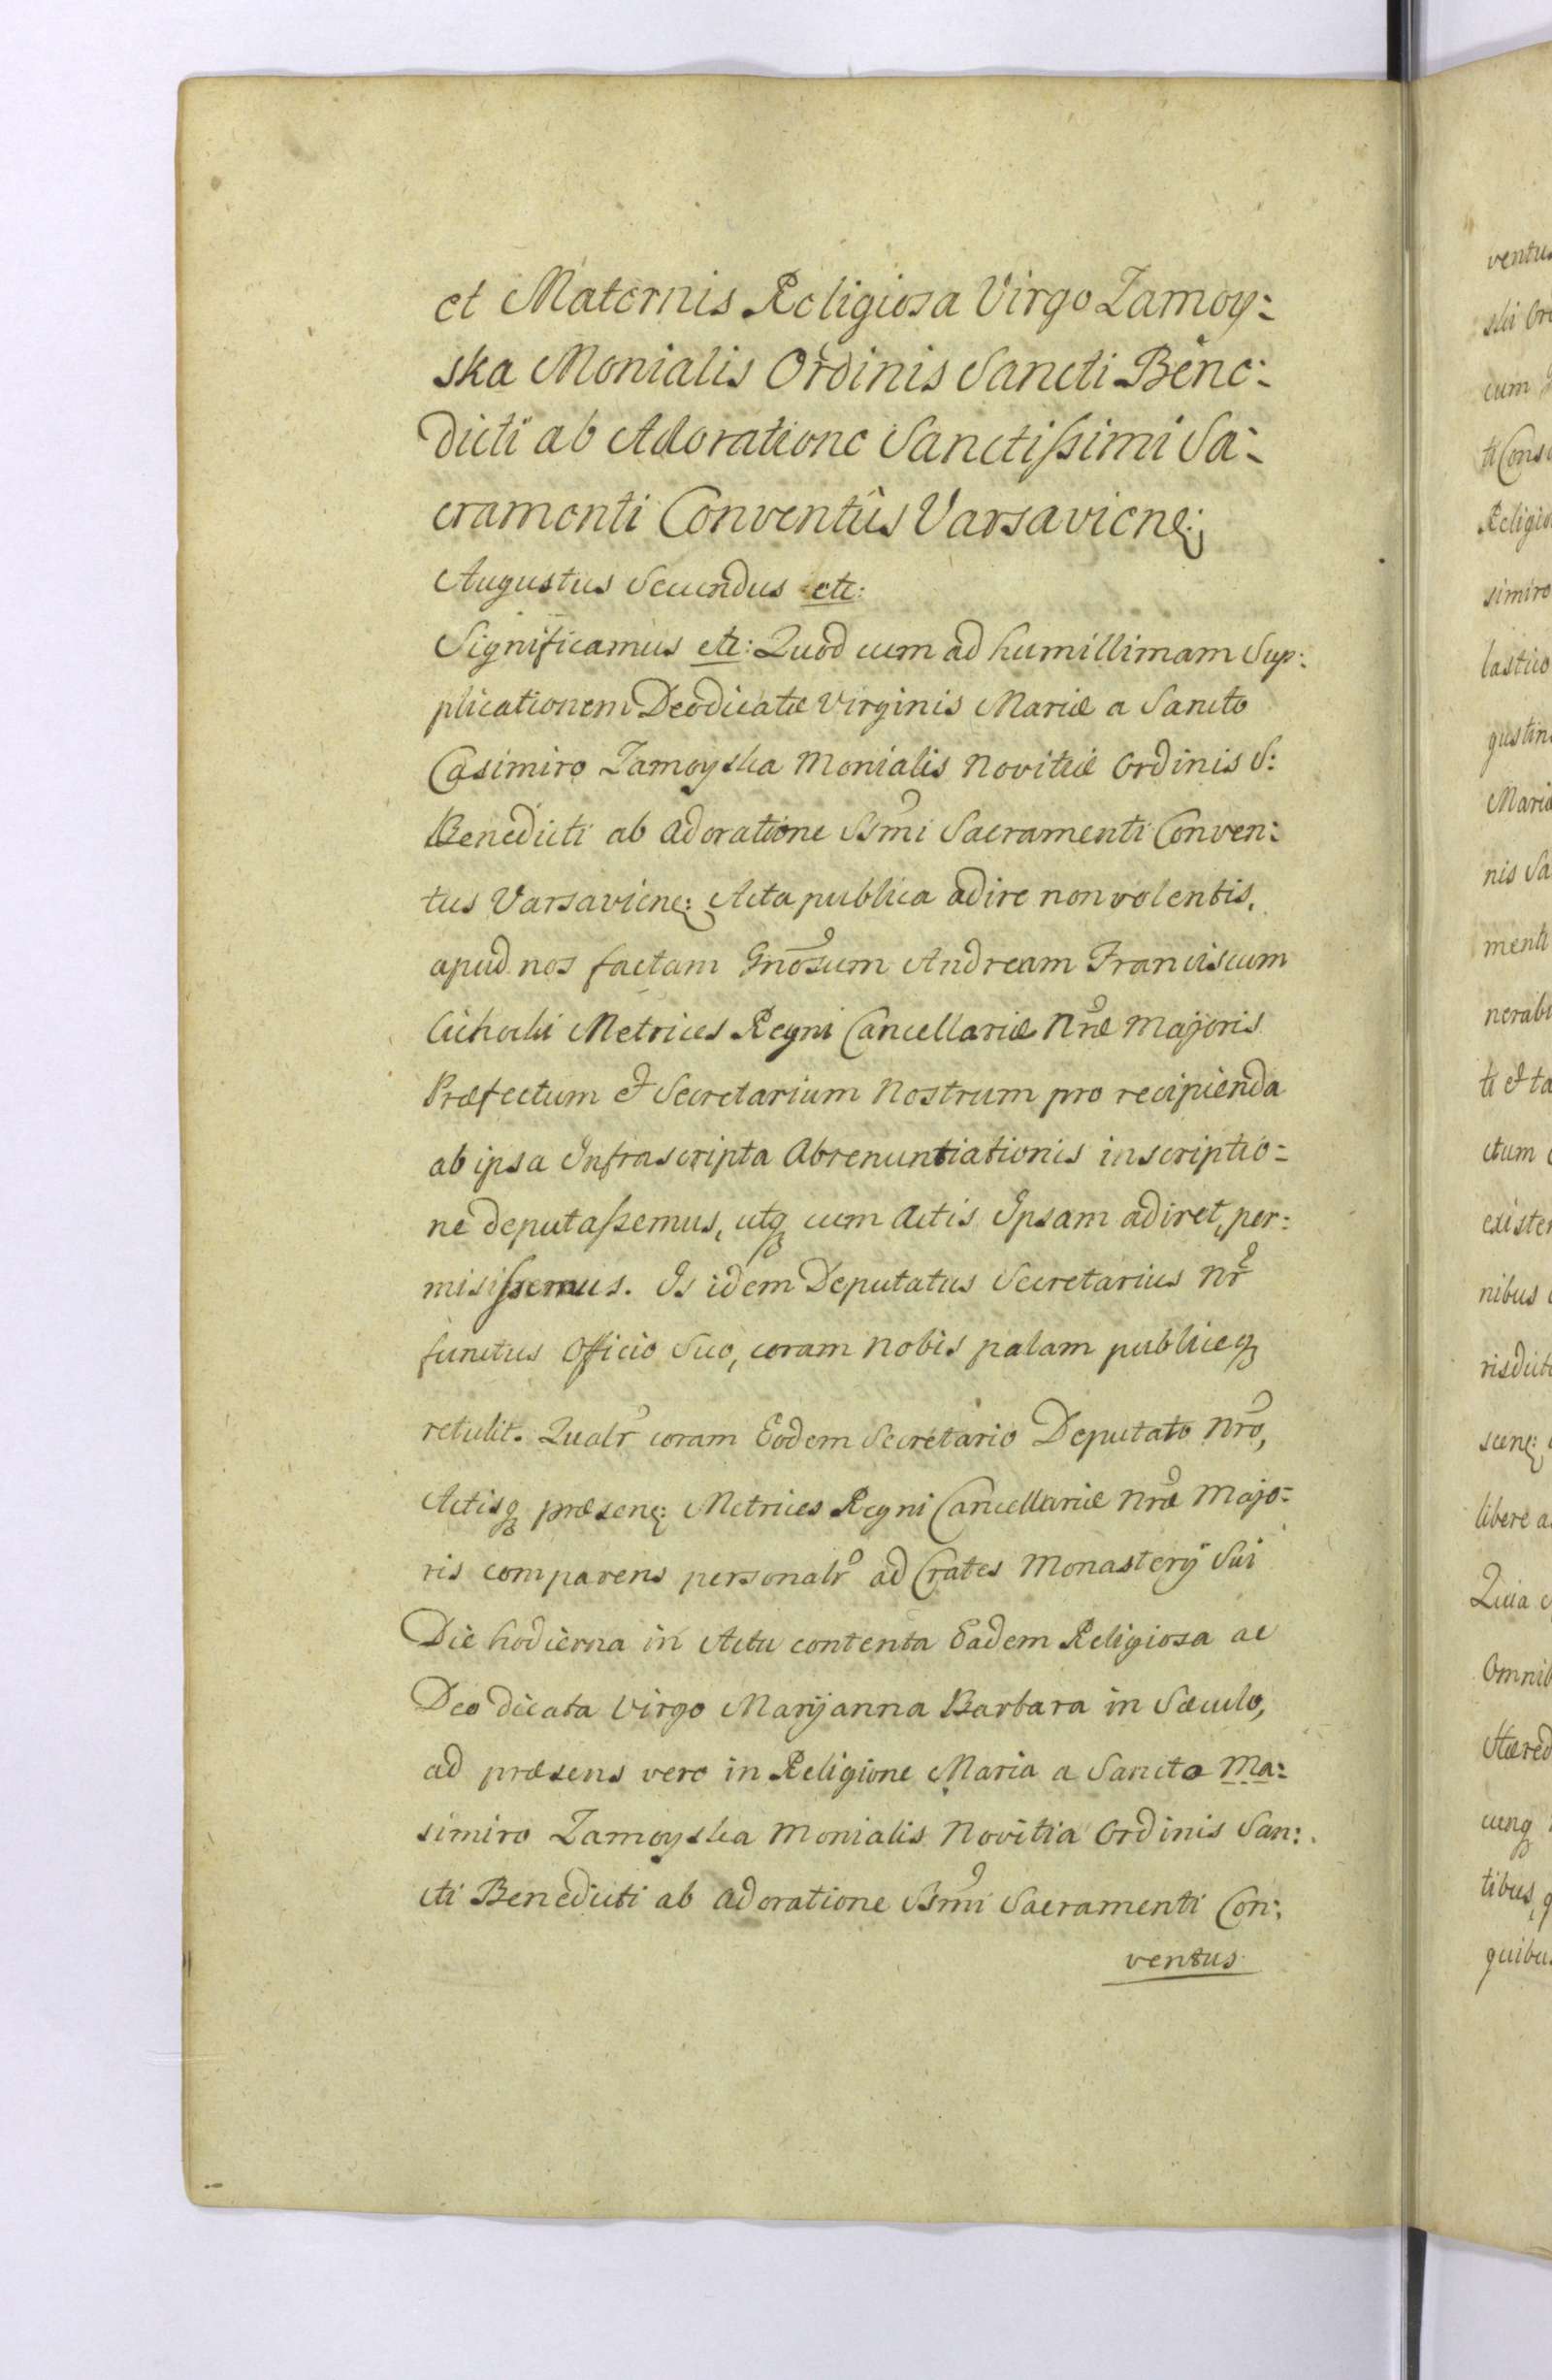 et Maternis Religiosa Virgo Zamoy:
ska Monialis Ordinis Sancti Bene:
dicti ab Adoratione Sanctißimi Sa:
cramenti Conventûs Varsaviene:
Augustus Secundus etc:
Significamus etc: Quod cum ad humillimam Sup:
plicationem Deodicatæ Virginis Mariæ a Sancto
Casimiro Zamoyska Monialis Novitiæ Ordinis S:
Benedicti ab Adoratione SSmi Sacramenti Conven:
tus Varsaviene: Acta publica adire non volentis,
apud nos factam Gnosum Andream Franciscum
Cichocki Metrices Regni Cancellariæ Nræ Majoris
Præfectum et Secretarium Nostrum pro recipienda
ab ipsa Infrascripta Abrenuntiationis inscriptio=
ne deputaßemus, utq cum Actis Ipsam adiret, per:
misißemus. Is idem Deputatus Secretarius Nr
functus Officio Suo, coram Nobis palam publiceq
retulit. Qualr coram Eodem Secretario Deputato Nro,
Actisq præsene: Metrices Regni Cancellariæ Nræ Majo=
ris comparens personalr ad Crates Monasterÿ Sui
Die hodierna in Actu contenta Eadem Religiosa ac
Deo dicata Virgo Maryanna Barbara in Sæculo,
ad præsens vero in Religione Maria a Sancto Ma:
simiro Zamoyska Monialis Novitia Ordinis San:
cti Benedicti ab Adoratione SSmi Sacramenti Con:
ventus
ventus
ski Or
cum
ti Cons
Religio
simiro
lastico
gustin
Maria
nis Sa
menti
nerabi
ti et ta
ctum
existen
nibus
risdict
scene:
libere a
Quia
Omnib
Hæred
cunq
tibus, q
quibu